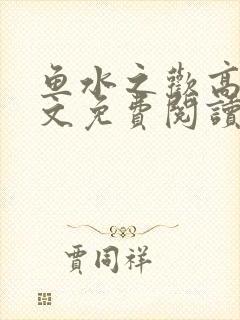 鱼水之歡高
文免費閱讀
賈同祥